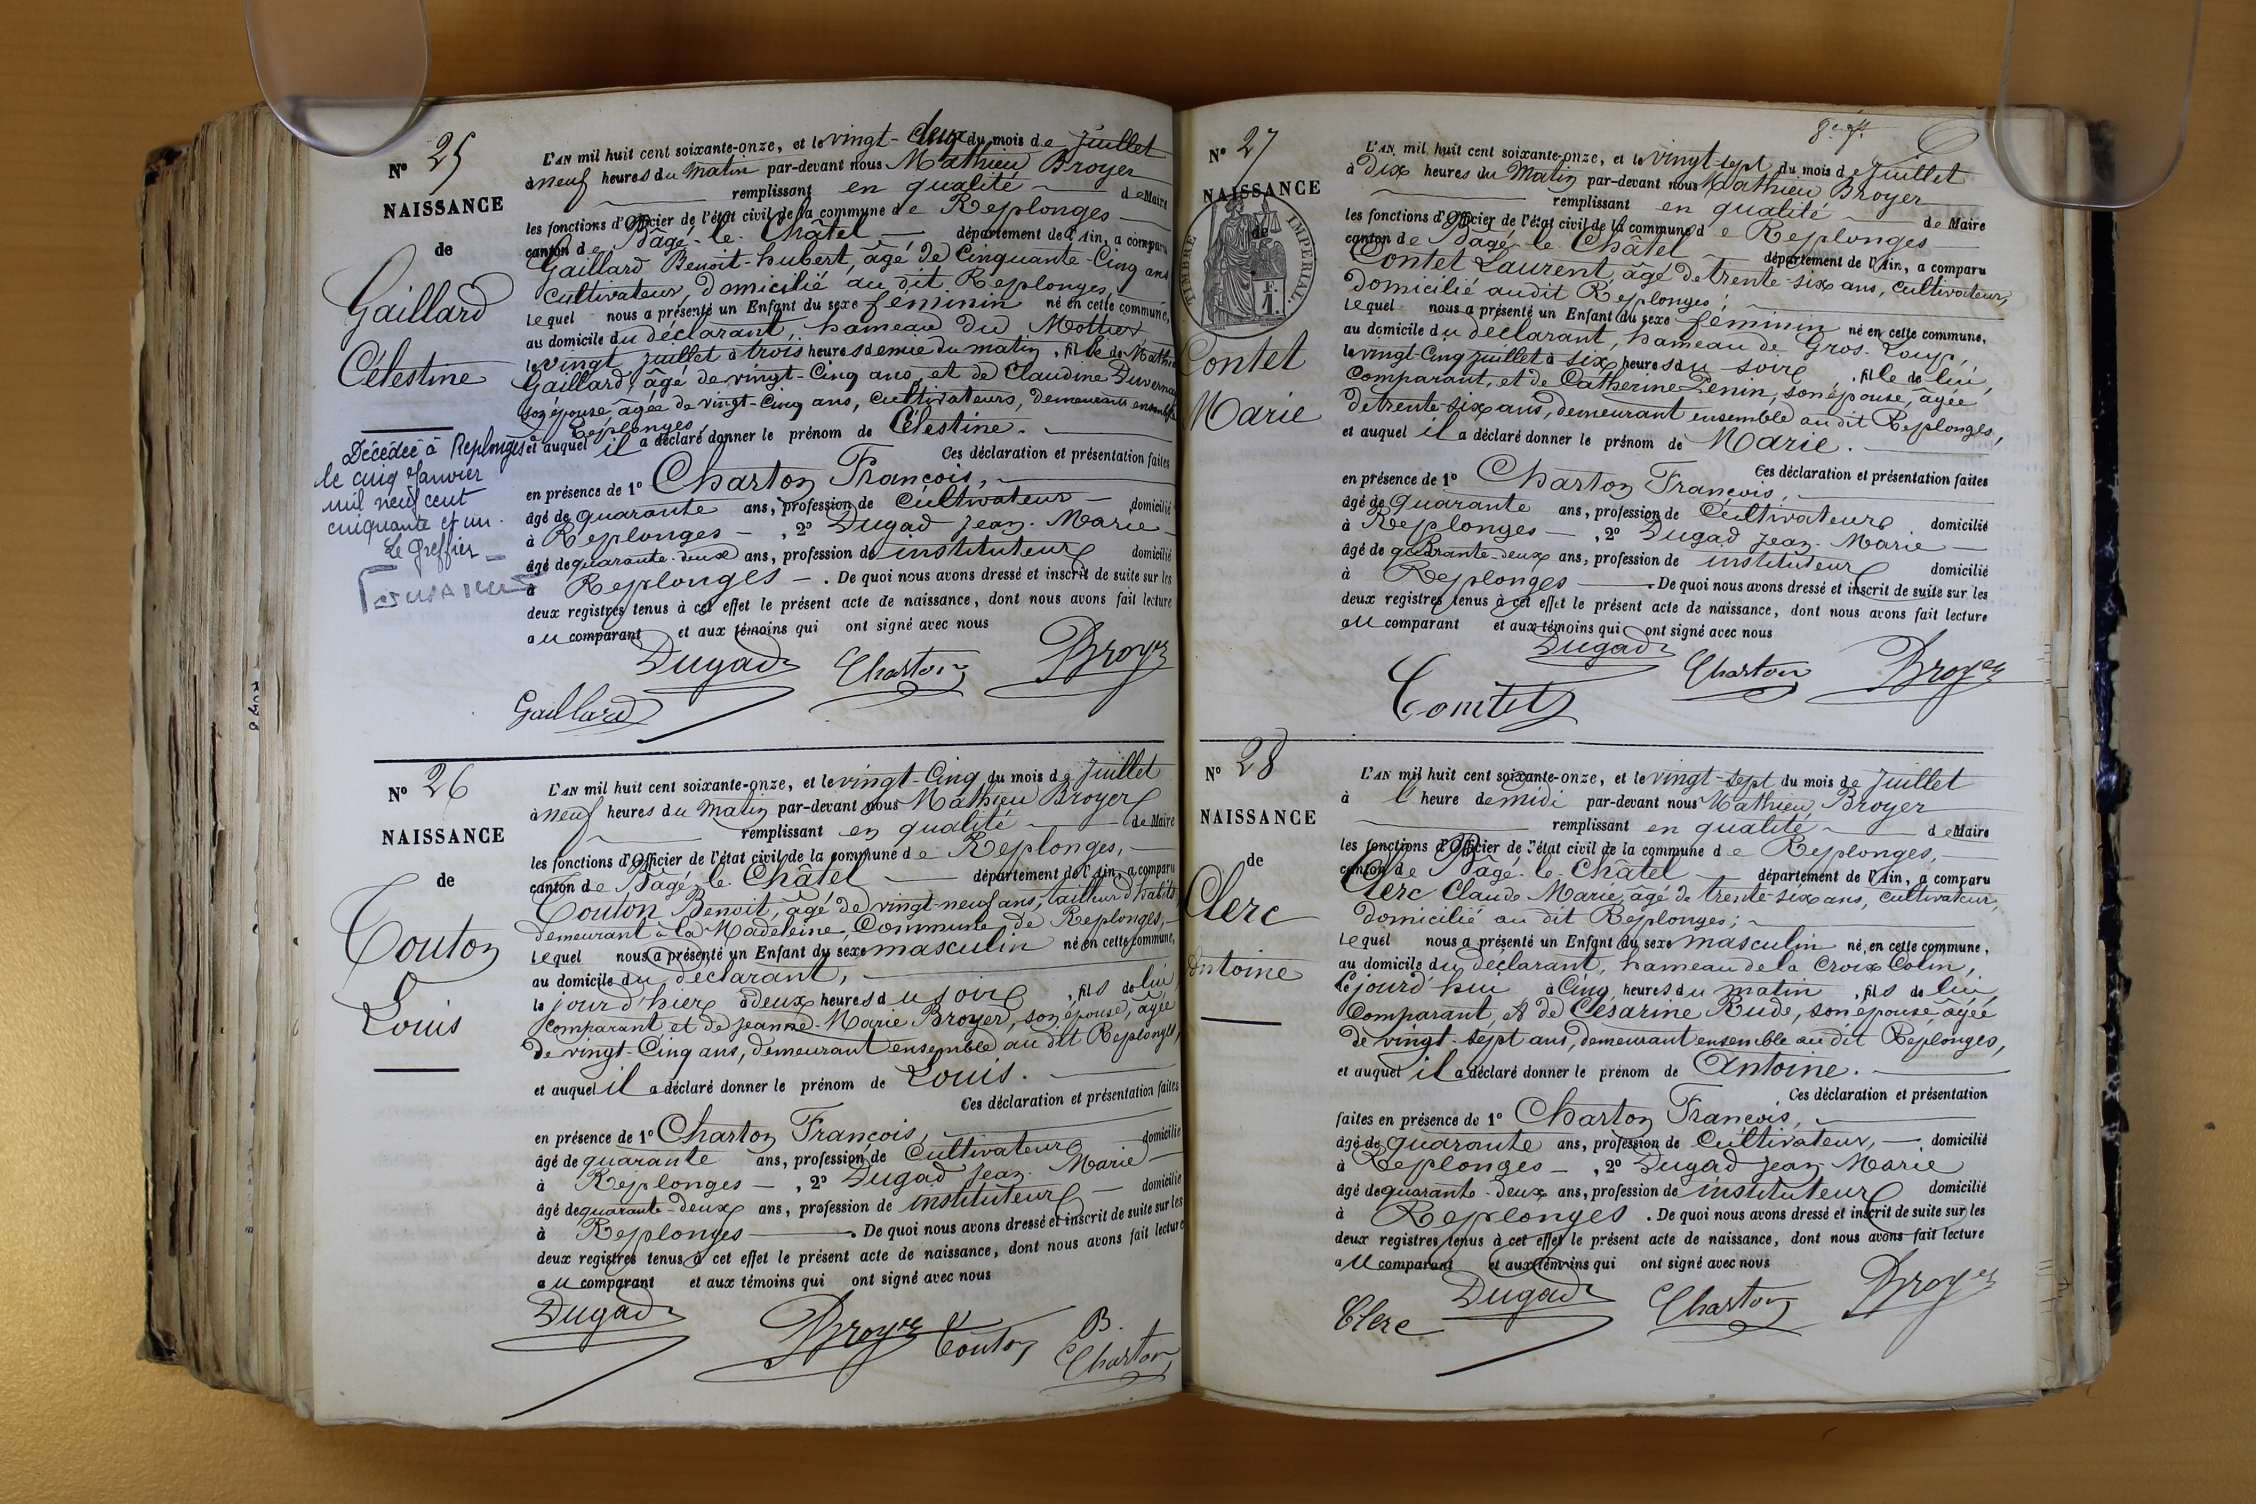 N° 25
NAISSANCE
de
Gaillard
Célestine
Décédée à Replonges
le cinq Janvier
mil neuf cent
cinquante et un.
Le Greffier
L'AN mil huit cent soixante-onze, et le vingt-deux du mois de Juillet
à neuf heures du matin par-devant nous Mathieu Broyer
remplissant en qualité de Maire
les fonctions d'Officier de l'état civil de la commune de Replonges
canton de Bâgé-le-Châtel département de l'Ain, a comparu
Gaillard Benoit-hubert, âgé de Cinquante-Cinq ans
Cultivateur, domicilié au dit Replonges,
lequel nous a présenté un Enfant du sexe féminin né en cette commune,
au domicile du déclarant, hameau du Mottier
le vingt juillet à trois heures demie du matin, fille de Mathieu
Gaillard, âgé de vingt-Cinq ans, et de Claudine Duvernay
son épouse, âgée de vingt-Cinq ans, Cultivateurs, demeurants ensemble
à Replonges
et auquel il a déclaré donner le prénom de Célestine.
Ces déclaration et présentation faites
en présence de 1° Charton François,
âgé de quarante ans, profession de Cultivateur domicilié
à Replonges , 2° Dugad Jean-Marie
âgé de quarante-deux ans, profession de instituteur domicilié
à Replonges. De quoi nous avons dressé et inscrit de suite sur les
deux registres tenus à cet effet le présent acte de naissance, dont nous avons fait lecture
au comparant et aux témoins qui ont signé avec nous
Dugad Charton Broyer
Gaillard
N° 26
NAISSANCE
de
Touton
Louis
L'AN mil huit cent soixante-onze, et le vingt-Cinq du mois de Juillet
à neuf heures du matin par-devant nous Mathieu Broyer
remplissant en qualité de Maire
les fonctions d'Officier de l'état civil de la commune de Replonges,
canton de Bâgé-le-Châtel département de l'Ain, a comparu
Touton Benoit, âgé de vingt-neuf ans, tailleur d'habits
demeurant à la Madeleine, Commune de Replonges,
lequel nous a présenté un Enfant du sexe masculin né en cette commune,
au domicile du déclarant,
le jour d'hier à deux heures du soir, fils de lui
comparant et de Jeanne-Marie Broyer, son épouse, âgée
de vingt-Cinq ans, demeurant ensemble au dit Replonges,
et auquel il a déclaré donner le prénom de Louis.
Ces déclaration et présentation faites
en présence de 1° Charton François,
âgé de quarante ans, profession de Cultivateur domicilié
à Replonges , 2° Dugad Jean-Marie
âgé de quarante-deux ans, profession de instituteur domicilié
à Replonges. De quoi nous avons dressé et inscrit de suite sur les
deux registres tenus à cet effet le présent acte de naissance, dont nous avons fait lecture
au comparant et aux témoins qui ont signé avec nous
Dugad Broyer Touton B.
Charton
N° 27
NAISSANCE
de
TIMBRE IMPERIAL
F.
1.
Contet
Marie
L'AN mil huit cent soixante-onze, et le vingt-sept du mois de Juillet
à Dix heures du Matin par-devant nous Mathieu Broyer
remplissant en qualité de Maire
les fonctions d'Officier de l'état civil de la commune de Replonges
canton de Bâgé-le-Châtel département de l'Ain, a comparu
Contet Laurent, âgé de trente-six ans, Cultivateur,
domicilié au dit Replonges;
lequel nous a présenté un Enfant du sexe féminin né en cette commune,
au domicile du déclarant, hameau de Gros-Loup,
le vingt-Cinq Juillet à six heures du soir, fille de lui,
Comparant, et de Catherine Penin, son épouse, âgée
de trente-six ans, demeurant ensemble au dit Replonges,
et auquel il a déclaré donner le prénom de Marie.
Ces déclaration et présentation faites
en présence de 1° Charton François,
âgé de quarante ans, profession de Cultivateur domicilié
à Replonges , 2° Dugad Jean-Marie
âgé de quarante-deux ans, profession de instituteur domicilié
à Replonges. De quoi nous avons dressé et inscrit de suite sur les
deux registres tenus à cet effet le présent acte de naissance, dont nous avons fait lecture
au comparant et aux témoins qui ont signé avec nous
Dugad
Contet Charton Broyer
N° 28
NAISSANCE
de
Clerc
Antoine
L'AN mil huit cent soixante-onze, et le vingt-sept du mois de Juillet
à l' heure de midi par-devant nous Mathieu Broyer
remplissant en qualité de Maire
les fonctions d'Officier de l'état civil de la commune de Replonges,
canton de Bâgé-le-Châtel département de l'Ain, a comparu
Clerc Claude Marie, âgé de trente-six ans, Cultivateur,
domicilié au dit Replonges;
lequel nous a présenté un Enfant du sexe masculin né en cette commune,
au domicile du déclarant, hameau de la Croix Colin,
le jourd'hui à Cinq heures du matin, fils de lui,
Comparant, et de Césarine Rude, son épouse âgée
de vingt-sept ans, demeurant ensemble au dit Replonges,
et auquel il a déclaré donner le prénom de Antoine.
Ces déclaration et présentation
faites en présence de 1° Charton François,
âgé de quarante ans, profession de Cultivateur, domicilié
à Replonges , 2° Dugad Jean-Marie
âgé de quarante-deux ans, profession de instituteur domicilié
à Replonges. De quoi nous avons dressé et inscrit de suite sur les
deux registres tenus à cet effet le présent acte de naissance, dont nous avons fait lecture
au comparant et aux témoins qui ont signé avec nous
Clerc Dugad Charton Broyer